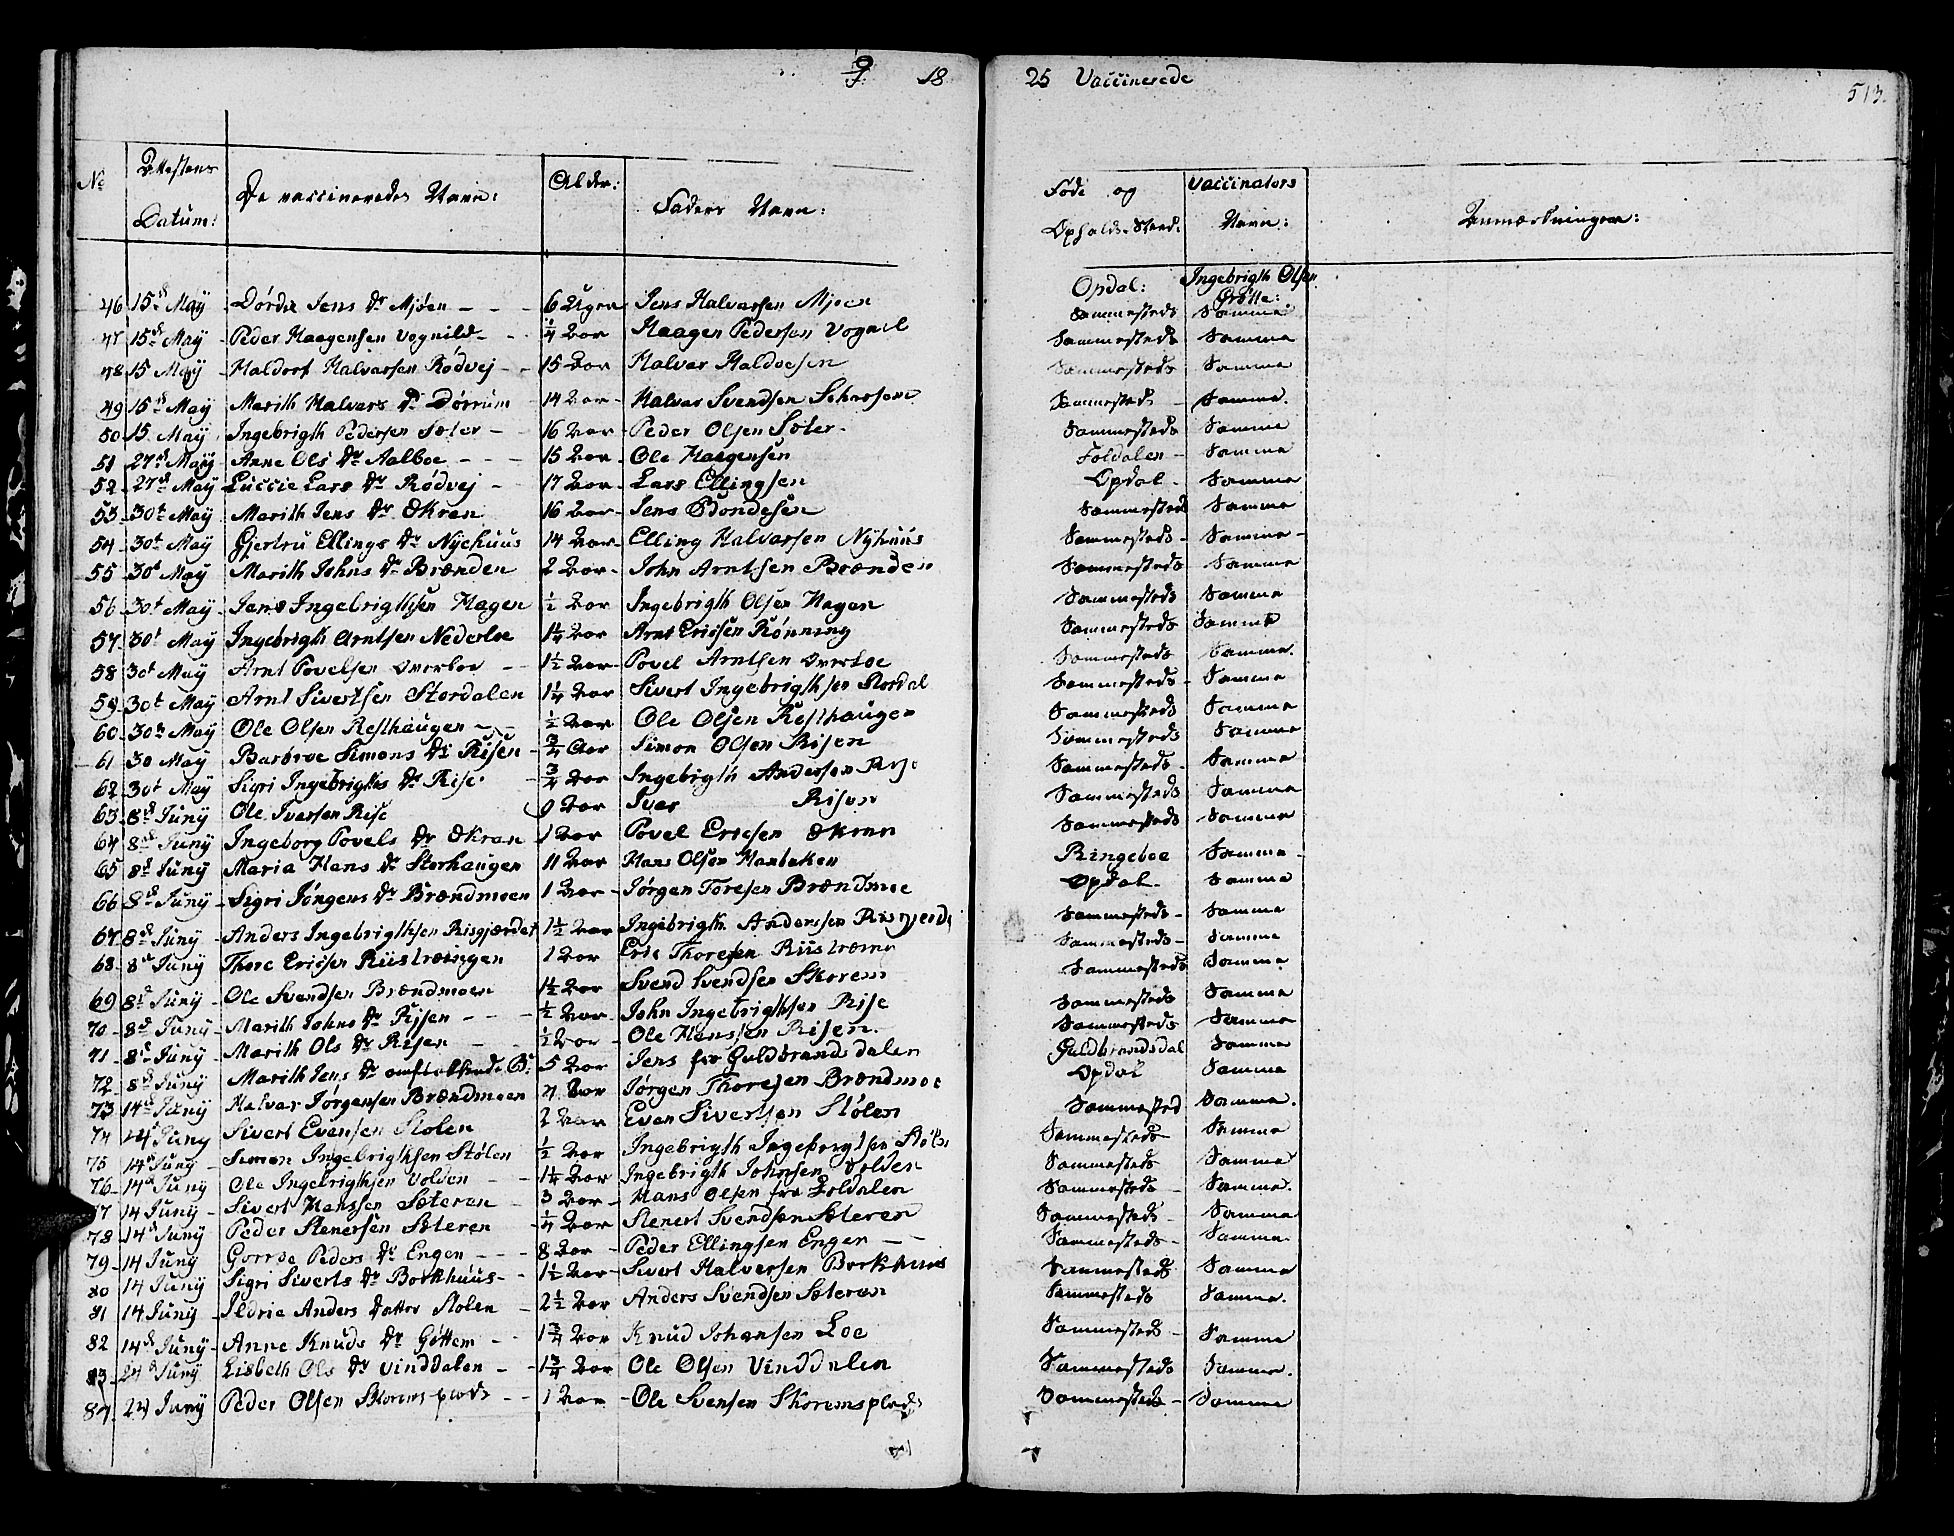 18
25 Vaccinerede
513.
No
Attestens Datum:
De vaccineredes Navn:
Alder:
Faders Navn:
Føde og Opholds-Sted:
Vaccinators Navn:
Anmærkninger:
46 15de May Dordi Jens Dr Mjøen - - - 6 Uger Jens Halvorsen Mjoen Opdal: Ingebrigth Olsen Grøtte:
47 15d May Peder Haagensen Vognild - - 1/4 Aar Haagen Pedersen Vognil Sammesteds Samme
48 15 May Haldort Halvorsen Rødvej - - 15 Aar Halvor Haldorsen Sammesteds Samme
49 15d May Marith Halvors Dr Dørrum - 14 Aar - Halvor Svendsen Sammesteds Samme
50 15 May Ingebrigth Pedersen Sæter - - 16 Aar - Peder Olsen Sæter - Sammesteds - Samme.
51 27d May Anne Ols Dr Aalboe - - - 15 Aar - Ole Haagensen Sammesteds Samme
52 27d May Luccie Lars Dr Rødvej - 17 Aar - Lars Ellingsen Foldalen - Samme
53 30t May Marith Jens Dr Økran 16 Aar - Jens Opdal - Samme
54 30t May Gjertru Ellings Dr Nyehuus 14 Aar - Elling Halvorsen Nyhuus Sammested Samme
55 30t May Marith Johns Dr Brænden 2 Aar - John Arntsen Brænden Sammesteds - Samme -
56 30t May Jens Ingebrigthsen Hagen 1/2 Aar Ingebrigth Olsen Hagen Sammesteds Samme
57 30t May Ingebrigth Arntsen Nederloe 1 1/4 Aar Arnt Ericsen Rønning Sammesteds Samme
58 30t May Arnt Povelsen Overloe - - 1 1/2 Aar - Povel Arntsen Overloe Sammesteds Samme
59 30t May Arnt Sivertsen Stordalen 1 1/4 Aar Sivert Ingebrigthsen Stordal Sammesteds Samme.
60 30t May Ole Olsen Resthaugen - - 1/2 Aar Ole Olsen Resthaugen Sammesteds - Samme
61 30 May Barbroe Simons Dr Risen - 3/4 Aar Simon Olsen Risen Sammesteds Samme
62 30t May Sigri Ingebrigths Dr Rise - 3/4 Aar Ingebrigth Andersen Rise Sammesteds Samme
63 8d Juny Ole Iversen Rise 9 Aar Iver Risen Sammesteds - Samme
64 8d Juny Ingeborg Povels Dr Økran 1 Aar Povel Ericsen Økran Sammesteds Samme
65 8d Juny Maria Hans Dr Storhaugen 11 Aar Hans Olsen Sammesteds Samme
66 8d Juny Sigri Jørgens Dr Brændmoen 1 Aar - Jørgen Toresen Brændmoe Ringeboe Samme -
67 8d Juny Anders Ingebrigthsen Risgjærdet 1 1/2 Aar Ingebrigth Anderssen Risgjerde Opdal - Samme
68 8d Juny Thore Ericsen Riistrøingen 1 Aar Eric Thoresen Sammesteds - Samme
69 8d Juny Ole Svendsen Brændmoen 1 1/2 Aar Svend Svendsen Skorem Sammesteds - Samme
70 8d Juny Marith Johns Dr Risen - - - 1/2 Aar - John Ingebrigthsen Rise Sammesteds Samme
71 8d Juny Marith Ols Dr Risen - - 1/2 Aar - Ole Hanssen Risen. Sammesteds Samme
72 8d Juny Marith Jens Dr 5 Aar Jens fra Guldbrandsdalen Sammesteds Samme
73 14d Juny Halvar Jørgensen Brændmoen 7 Aar Jørgen Thoresen Brændmoe Guldbrandsdal Samme
74 14d Juny Sivert Evensen Stølen 2 Aar Even Sivertsen Stølen Opdal Samme
75 14d Juny Simon Ingebrigthsen Stølen 1/2 Aar Ingebrigth Ingeborgtsen Støle Sammested Samme.
76 14d Juny Ole Ingebrigthsen Volden - - 1 1/4 Aar Ingebrigth Johnsen Volden Sammesteds Samme
77 14 Juny Sivert Hanssen Sæteren - 3 Aar - Hans Olsen fra Foldalen Sammesteds Samme
78 14d Juny Peder Stenersen Sæteren 1/4 Aar Stenert Svendsen Sæteren Sammesteds - Samme.
79 14 Juny Gorroe Peders Dr Engen - - - 8 Aar - Peder Ellingsen Engen - - Sammesteds - Samme
80 14 Juny Sigri Siverts Dr Borkhuus - - 1 1/2 Aar - Sivert Halversen Borkhuus Sammesteds - Samme
81 14 Juny Ildrie Anders Datter Stolen - 2 1/2 Aar Anders Svendsen Sæteren Sammesteds Samme
82 14d Juny Anne Knuds Dr Gøttem - - 1 3/4 Aar Knud Johansen Loe Sammesteds Samme.
83 24d Juny Lisbeth Ols Dr Vinddalen - - 1 3/4 Aar Ole Olsen Vinddalen Sammesteds - Samme
84 24 Juny Peder Olsen Skoremsplads - - 1 Aar - Ole Svensen Skoremsplads Sammesteds Samme.
Sammesteds - Samme